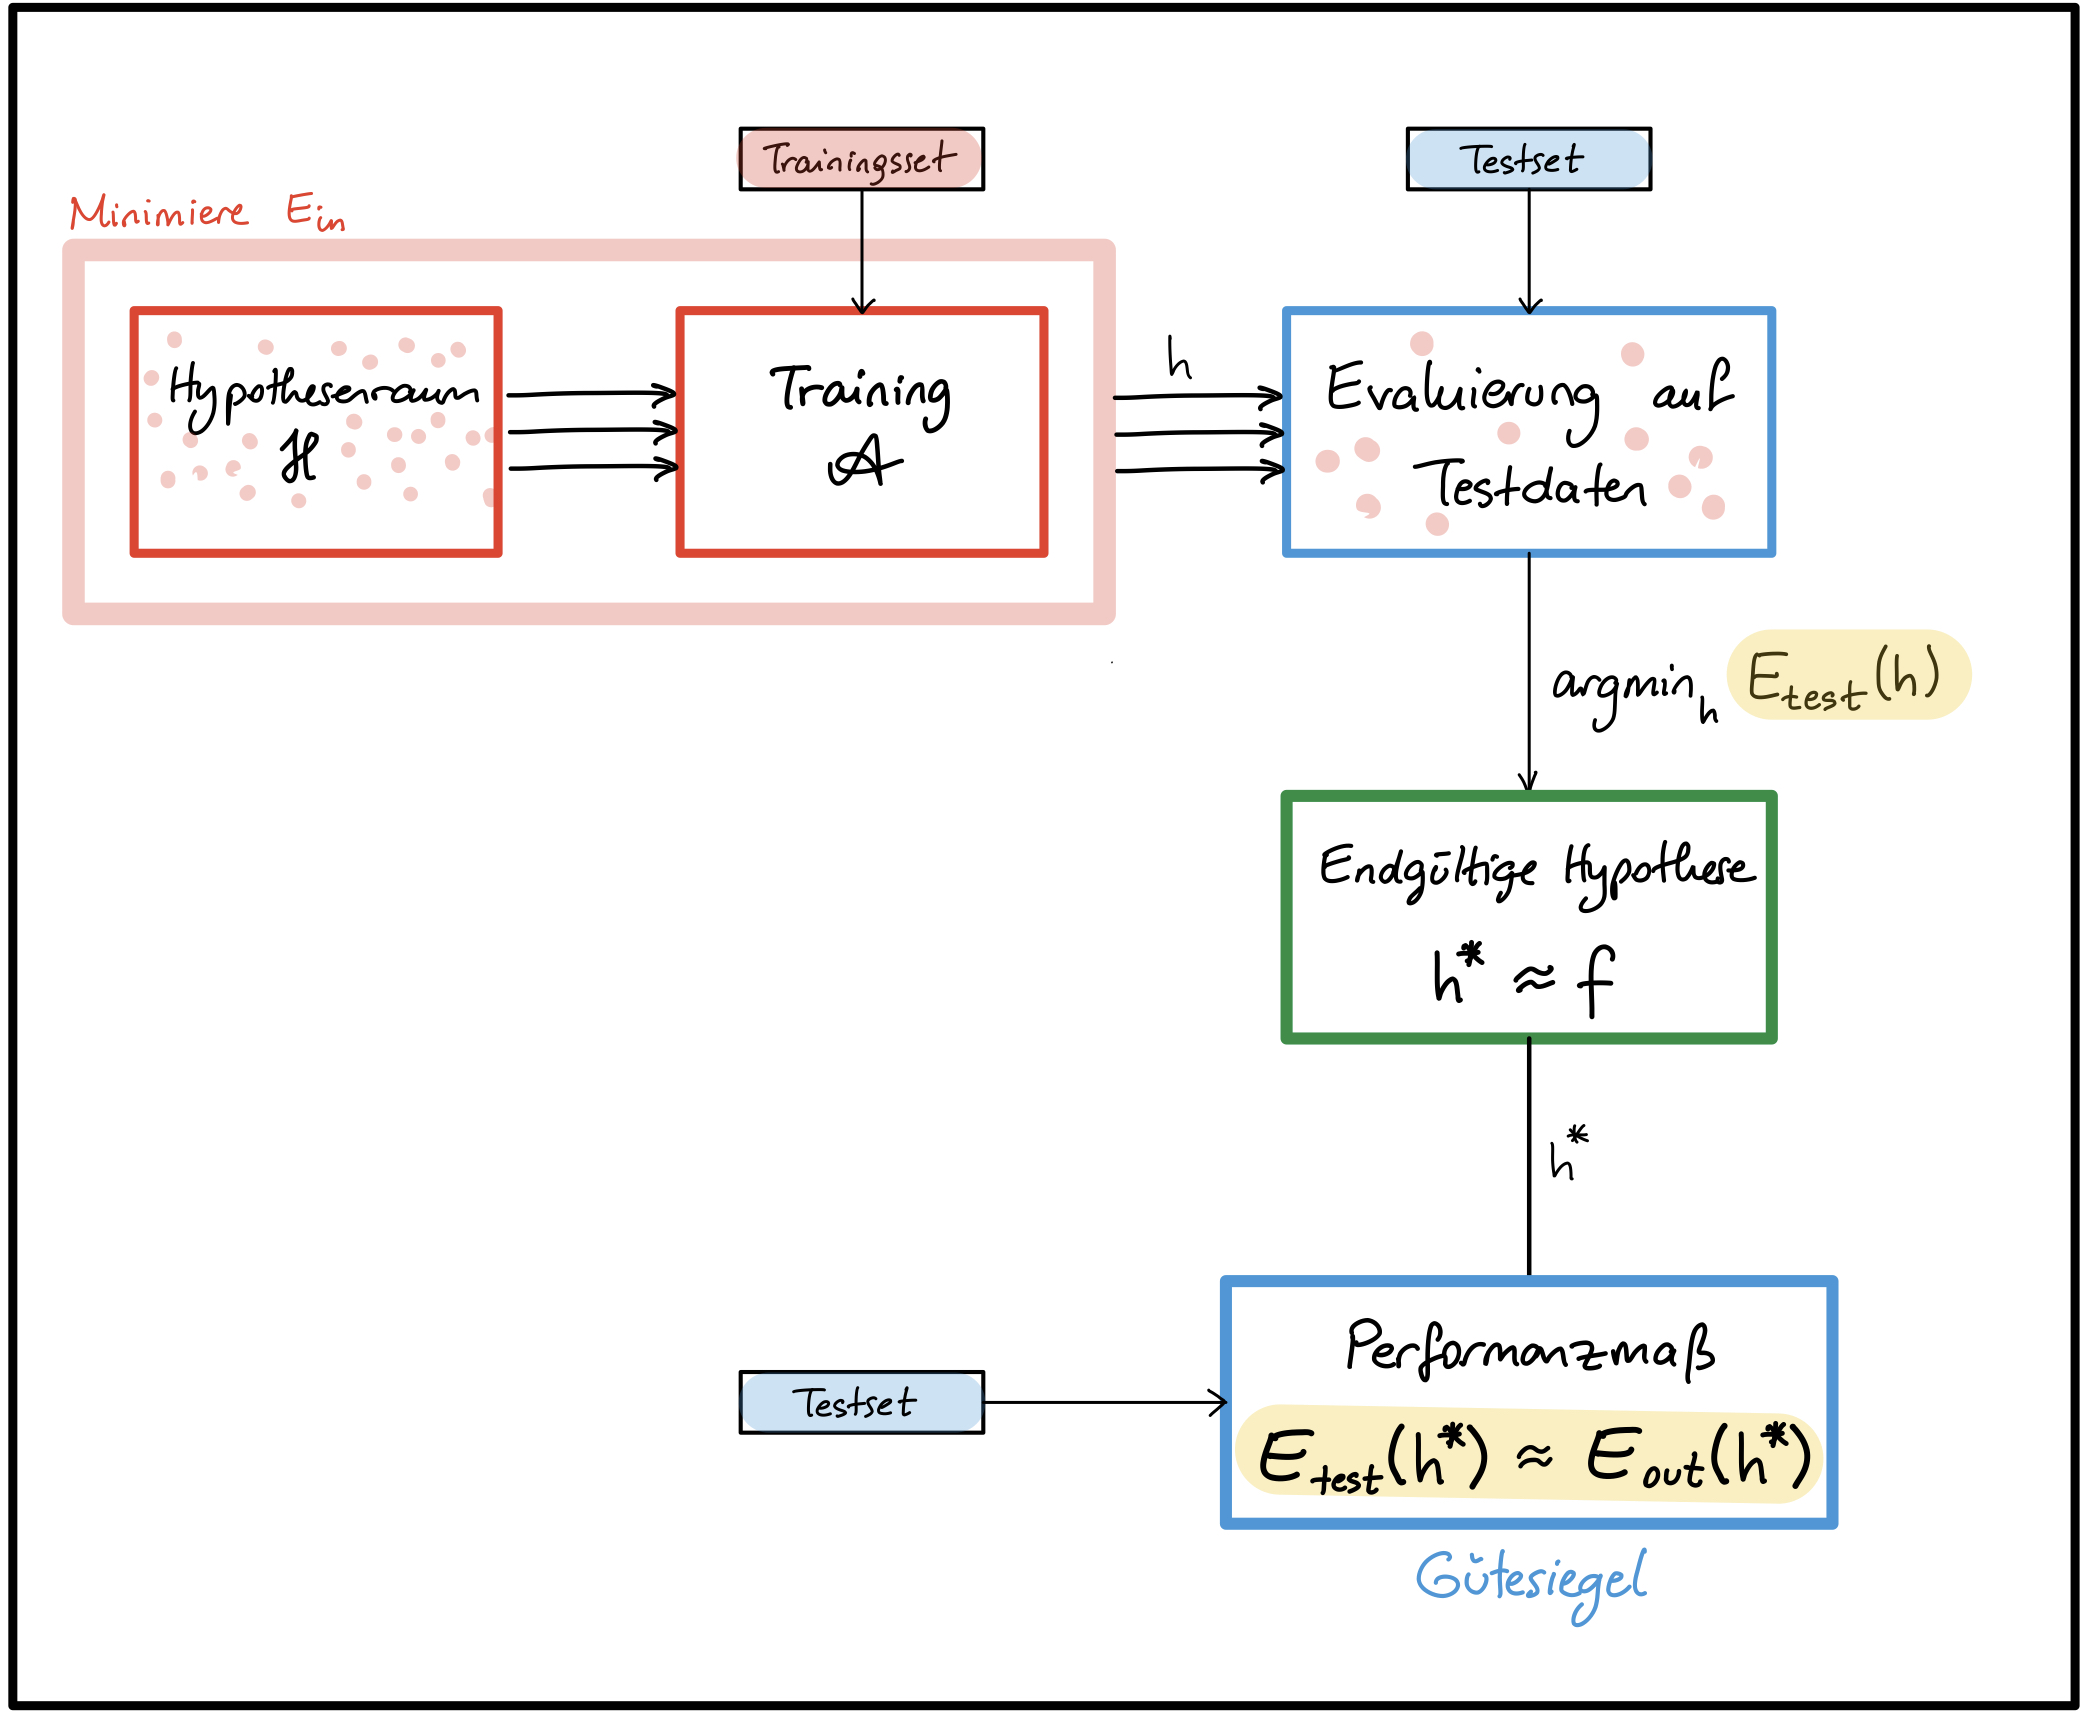 Trainingsset
Testset
Minimiere E_in
Hypothesenraum
H
Training
A
h
Evaluierung auf
Testdaten
argmin_h E_test(h)
Endgültige Hypothese
h* ≈ f
h*
Testset
Performanzmaß
E_test(h*) ≈ E_out(h*)
Gütesiegel